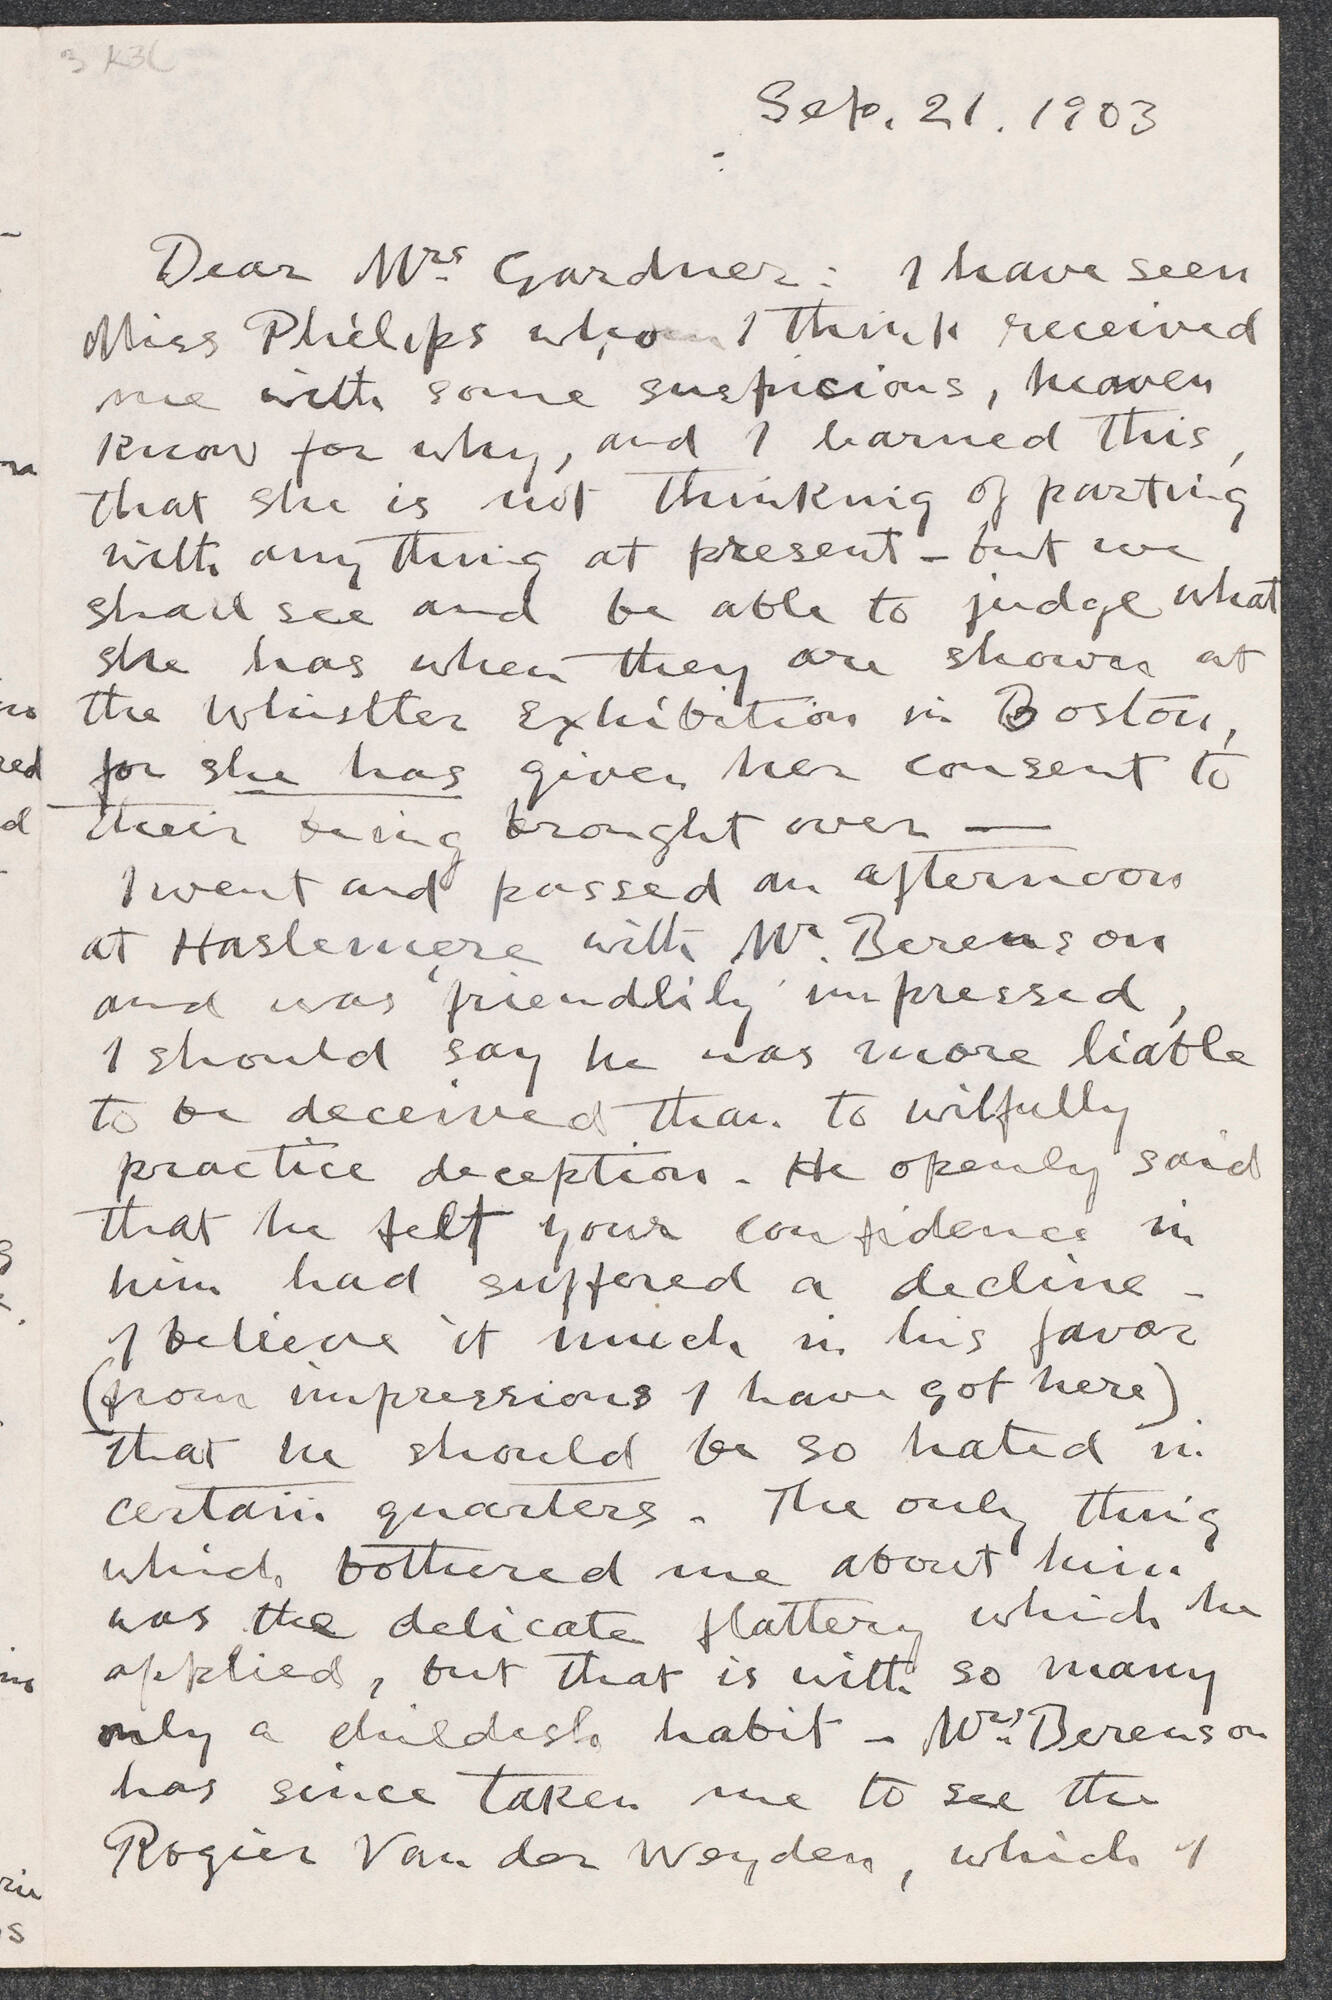 Sep. 21. 1903
Dear Mrs Gardner: I have seen
Miss Philips who I think received
me with some suspicious, heaven
know for why, and I learned this,
that she is not thinking of parting
with any thing at present – but we
shall see and be able to judge what
she has when they are shown at
the Whistler Exhibition in Boston,
for she has given her consent to
their being brought over —
I went and passed an afternoon
at Haslemere with Mr. Berenson
and was 'friendlily' impressed,
I should say he was more liable
to be deceived than to wilfully
practice deception. He openly said
that he felt your confidence in
him had suffered a decline –
I believe it much in his favor
(from impressions I have got here)
that he should be so hated in
certain quarters. The only thing
which bothered me about him
was the delicate flattery which he
applied, but that is with so many
only a childish habit – Mrs. Berenson
has since taken me to see the
Rogier Van der Weyden, which I